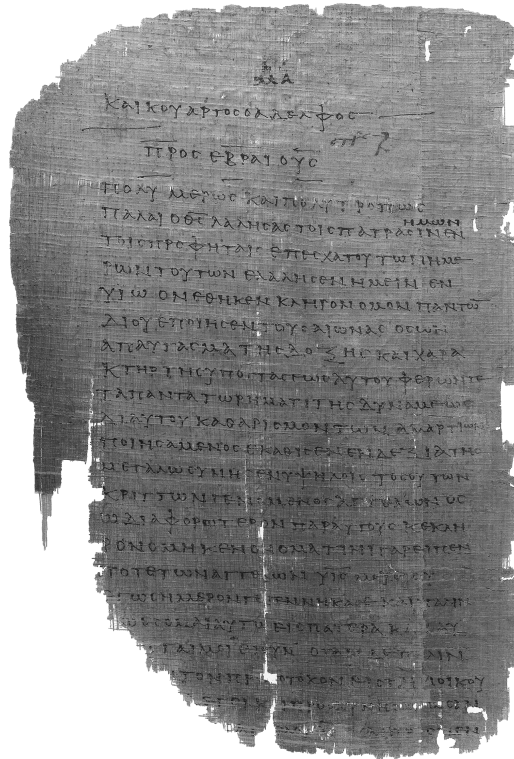 ΜΑ
ΚΑΙ ΚΟΥΑΡΤΟC Ο ΑΔΕΛΦΟC
ΠΡΟC ΕΒΡΑΙΟΥC
ΠΟΛΥΜΕΡΩC ΚΑΙ ΠΟΛΥΤΡΟΠΩC
ΗΜΩΝ
ΠΑΛΑΙ Ο Θ̅C̅ ΛΑΛΗCΑC ΤΟΙC ΠΑΤΡΑCΙΝ ΕΝ
ΤΟΙC ΠΡΟΦΗΤΑΙC ΕΠ ΕCΧΑΤΟΥ ΤΩΝ ΗΜΕ
ΡΩΝ ΤΟΥΤΩΝ ΕΛΑΛΗCΕΝ ΗΜΕΙΝ ΕΝ
ΥΙΩ ΟΝ ΕΘΗΚΕΝ ΚΛΗΡΟΝΟΜΟΝ ΠΑΝΤΩ̅
ΔΙ ΟΥ ΕΠΟΙΗCΕΝ ΤΟΥC ΑΙΩΝΑC ΟC ΩΝ
ΑΠΑΥΓΑCΜΑ ΤΗC ΔΟΞΗC ΚΑΙ ΧΑΡΑ
ΚΤΗΡ ΤΗC ΥΠΟCΤΑCΕΩC ΑΥΤΟΥ ΦΕΡΩΝ ΤΕ
ΤΑ ΠΑΝΤΑ ΤΩ ΡΗΜΑΤΙ ΤΗC ΔΥΝΑΜΕΩC
ΔΙ ΑΥΤΟΥ ΚΑΘΑΡΙCΜΟΝ ΤΩΝ ΑΜΑΡΤΙΩΝ
ΠΟΙΗCΑΜΕΝΟC ΕΚΑΘΙCΕΝ ΕΝ ΔΕΞΙΑ ΤΗC
ΜΕΓΑΛΩCΥΝΗC ΕΝ ΥΨΗΛΟΙC ΤΟCΟΥΤΩΝ
ΚΡΙΤΤΩΝ ΓΕΝΟΜΕΝΟC ΑΓΓΕΛΩΝ ΟC
Ω ΔΙΑΦΟΡΩΤΕΡΟΝ ΠΑΡ ΑΥΤΟΥC ΚΕΚΛΗ
ΡΟΝΟΜΗΚΕΝ ΟΝΟΜΑ ΤΙΝΙ ΓΑΡ ΕΙΠΕΝ
ΠΟΤΕ ΤΩΝ ΑΓΓΕΛΩΝ Υ̅Ι̅C̅ ΜΟΥ ΕΙ CΥ
CΗΜΕΡΟΝ ΓΕΓΕΝΝΗΚΑ CΕ ΚΑΙ ΠΑΛΙΝ
ΕCΟΜΑΙ ΑΥΤΩ ΕΙC ΠΑΤΕΡΑ ΚΑΙ
ΜΟΙ ΕΙC ΥΝ ΟΤΑΝ ΔΕ ΠΑΛΙΝ
ΤΟΝ ΠΡΩΤΟΤΟΚΟΝ ΕΙC ΤΗΝ ΟΙΚΟΥ